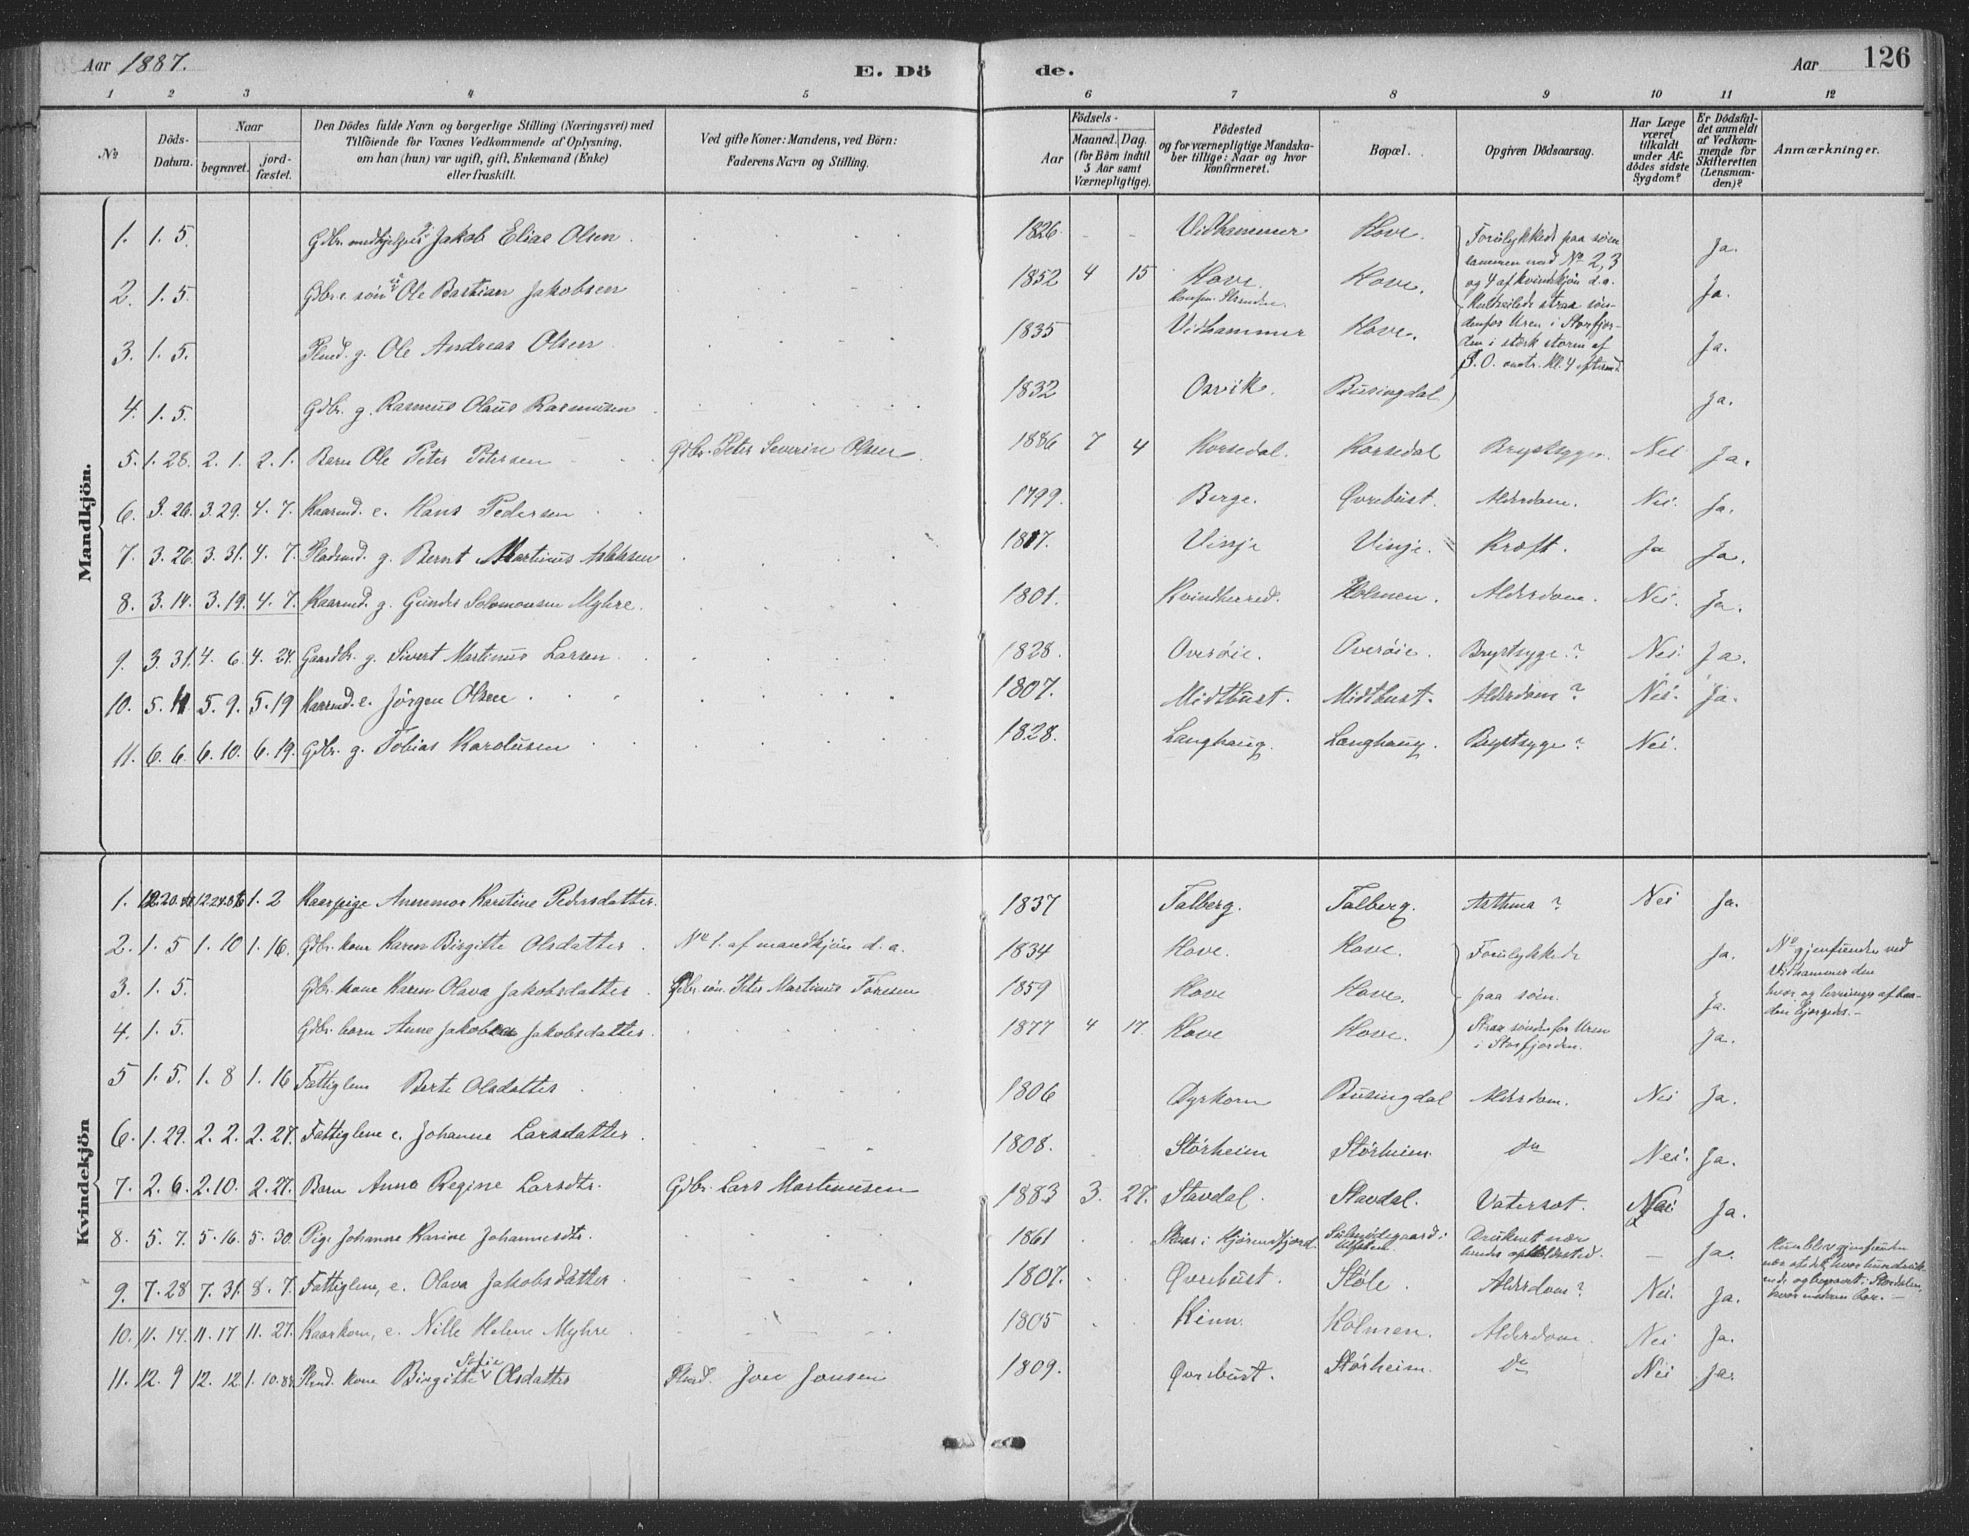 Aar 1887. E. Dö de. Aar 126
1 2 3 4 5 6 7 8 9 10 11 12
No
Döds-Datum.
Naar
begravet.
jord-fæstet.
Den Dödes fulde Navn og borgerlige Stilling (Næringsvei) med
Tilföiende for Voxnes Vedkommende af Oplysning,
om han (hun) var ugift, gift, Enkemand (Enke)
eller fraskilt.
Ved gifte Koner: Mandens, ved Börn:
Faderens Navn og Stilling.
Födsels-
Aar
Maaned. Dag.
(for Börn indtil
5 Aar samt
Værnepligtige).
Födested
og for værnepligtige Mandska-
ber tillige: Naar og hvor
konfirmeret.
Bopæl.
Opgiven Dödsaarsag.
Har Læge
været
tilkaldt
under Af-
dödes sidste
Sygdom?
Er Dödsfal-
det anmeldt
af Vedkom-
mende for
Skifteretten
(Lensman-
den)?
Anmærkninger.
Mandkjön.
1. 1. 5. Gdbr. Jakob Elias Olsen 1826 Vidhammer Hove. Forulykkede paa søen Ja.
sammen med No 2, 3
2. 1. 5. Gdbr.e søn Ole Bastian Jakobsen 1852 4 15 Hove. Hove. og 4 af kvindkjøn d.a. Ja.
3. 1. 5. Plmd. g. Ole Andreas Olsen 1835 Vidhammer Hove. Uren i Storfjor- Ja.
den i stærk storm af
4. 1. 5. Gdbr. g. Rasmus Olaus Rasmusen 1832 Osvik. Busingdal Ja.
5. 1. 28. 2. 1. 2. 1. Barn Ole Peter Petersen Gdbr. Peter Severin Olsen 1886 7 4 Korsedal. Korsedal Brystsyge. Nei Ja.
6. 3. 26. 3. 29. 4. 7. Kaarmd. e. Hans Pedersen 1799. Berge. Øvrebust. Alderdom. Nei. Ja.
7. 3. 26. 3. 31. 4. 7. Pladsmd. g. Bernt Martinus Aslaksen 1817. Vinje Vinje. Kræft. Ja Ja.
8. 3. 14. 3. 19. 4. 7. Kaarmd. g. Gunder Solomonsen Myhre. 1801. Kvindherred. Holmen. Alderdom. Nei. Ja.
9. 3. 31. 4. 6. 4. 24. Gaardbr. g. Sivert Martinus Larsen 1828. Overøie. Overøie. Brystsyge? Nei. Ja.
10. 5. 4 5. 9. 5. 19 Kaarmd. e. Jørgen Olsen 1807. Midtbust. Midtbust. Alderdom? Nei. Ja.
11. 6. 6. 6. 10. 6. 19. Gdbr. g. Tobias Karolusen 1828. Langhaug. Langhaug. Brystsyge? Nei.
Kvindekjön
1. 12. 20. 86 12 24. 86 1. 2 Kaarpige Annemor Karitine Pedersdatter. 1837 Falberg. Falberg. Asthma? Nei Ja.
2. 1. 5 1. 10 1. 16. Gdbr. kone Karen Birgitte Olsdatter No 1. af mandkjøn d. a. 1834 Hove. Hove. Forulykkede Ja. gjenfunden ved
Vidhammer den
3. 1. 5. Gdbr. kone Karen Olava Jakobsdatter Gdbr. søn. Peter Martinus Toresen 1859 Hove Hove. paa søen. Ja.
4. 1. 5. Gdbr. barn Anne Jakobsdatter. 1877 4 17. Hove Hove. Strax søndenfor Uren Ja.
i Storfjorden.
5 1. 5. 1. 8 1. 16 Fattiglem Berte Olsdatter 1806 Dyrkorn Busingdal Alderdom. Nei Ja.
6. 1. 29. 2. 2. 2. 27. Fattiglem e. Johanne Larsdatter 1808. Størheim Størheim do Nei. Ja.
7. 2. 6. 2. 10. 2. 27. Barn Anna Regine Larsdtr. Gdbr. Lars Martinusen 1883 3. 27. Stavdal. Stavdal. Vatersot. Nei Ja.
8. 5. 7. 5. 16. 5. 30. Pige Johanne Karine Johannesdtr. 1861 Skaar i Hjørendfjord. Druknet nær — Ja. Hun blev gjenfunden
hendes opholdssted.
9. 7. 28 7. 31. 8. 7. Fattiglem, e. Olava Jakobsdatter 1807. Øvrebust. Støle. Alderdom? Nei. Ja.
10. 11. 14. 11. 17 11. 27. Kaarkone, e. Nille Helene Myhre 1805 Kinn. Holmen. Alderdom. Nei Ja.
11. 12. 9 12. 12 1. 10. 88 Plmd. kone Birgitte Sofie Olsdatter Plmd. Joen Jonsen 1809. Øvrebust. Størheim. do Nei Ja.